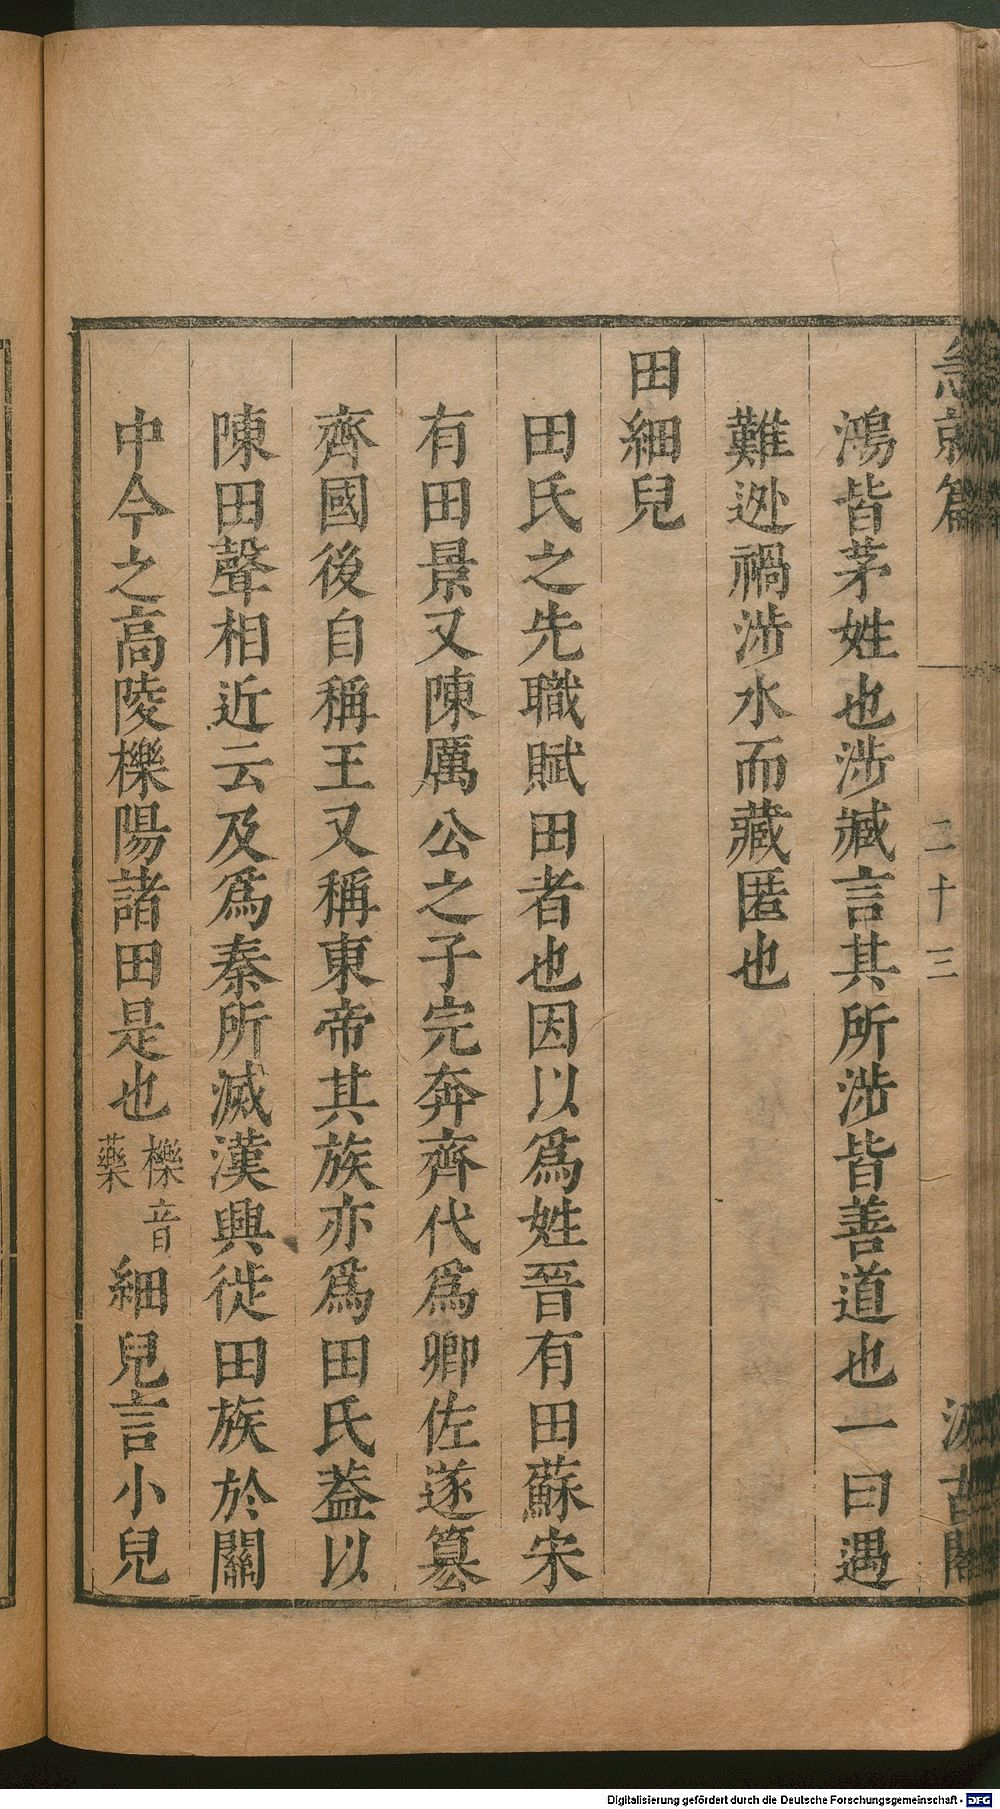 急就篇 二十三 汲古閣
鴻皆茅姓也涉臧言其所涉皆善道也一曰遇
難迯禍涉水而藏匿也
田細兒
田氏之先職賦田者也因以爲姓晉有田蘇宋
有田景又陳厲公之子完奔齊代爲卿佐遂簒
齊國後自稱王又稱東帝其族亦爲田氏葢以
陳田聲相近云及爲秦所滅漢興徙田族於關
中今之高陵櫟陽諸田是也櫟音藥細兒言小兒
Digitalisierung gefördert durch die Deutsche Forschungsgemeinschaft - DFG